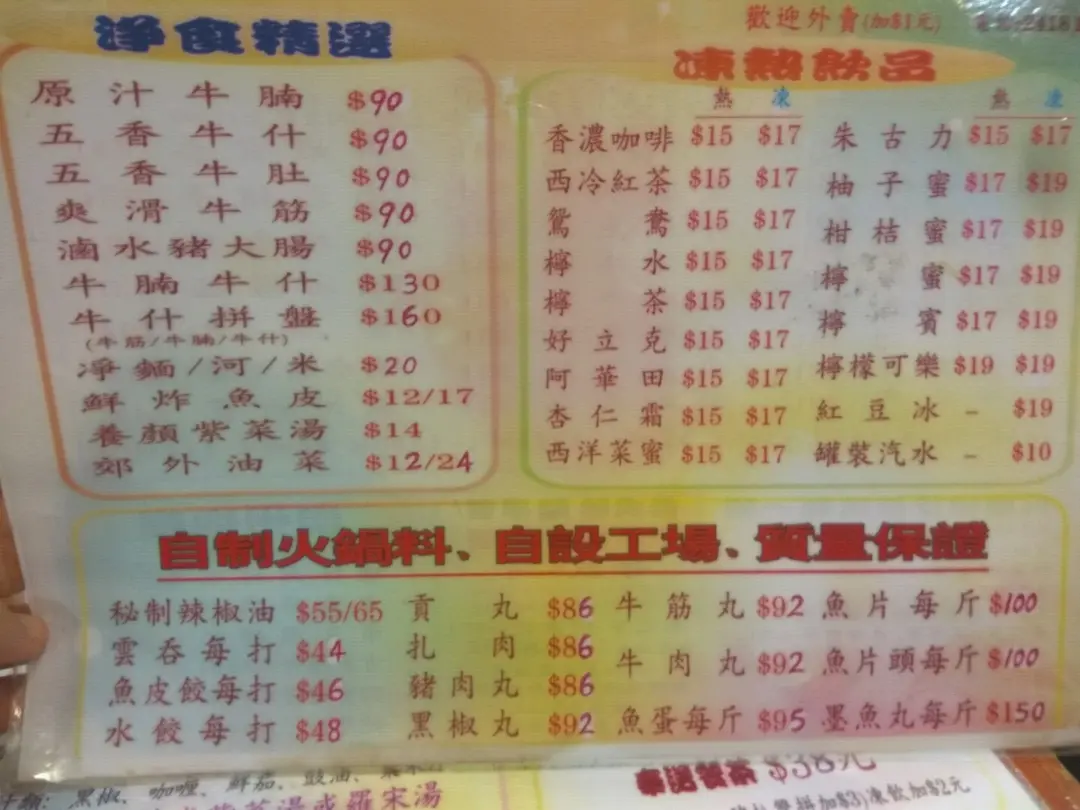 歡迎外賣(加$1元)
淨食精選
原汁牛腩 $90
五香牛什 $90
五香牛肚 $90
爽滑牛筋 $90
滷水豬大腸 $90
牛腩牛什 $130
牛什拼盤 $160
(牛筋/牛腩/牛什)
淨麵/河/米 $20
鮮炸魚皮 $12/17
養顏紫菜湯 $14
郊外油菜 $12/24
凍熱飲品
熱 凍
香濃咖啡 $15 $17
西冷紅茶 $15 $17
鴛鴦 $15 $17
檸水 $15 $17
檸茶 $15 $17
好立克 $15 $17
阿華田 $15 $17
杏仁霜 $15 $17
西洋菜蜜 $15 $17
熱 凍
朱古力 $15 $17
柚子蜜 $17 $19
柑桔蜜 $17 $19
檸蜜 $17 $19
檸賓 $17 $19
檸檬可樂 $19 $19
紅豆冰 - $19
罐裝汽水 - $10
自制火鍋料、自設工場、質量保證
秘制辣椒油 $55/65
雲吞每打 $44
魚皮餃每打 $46
水餃每打 $48
貢丸 $86
扎肉 $86
豬肉丸 $86
黑椒丸 $92
牛筋丸 $92
牛肉丸 $92
魚蛋每斤 $95
魚片每斤 $100
魚片頭每斤 $100
墨魚丸每斤 $150
黑椒、咖喱、鮮茄、豉油、
湯或羅宋湯
$38元
加$3)凍飲加$2元